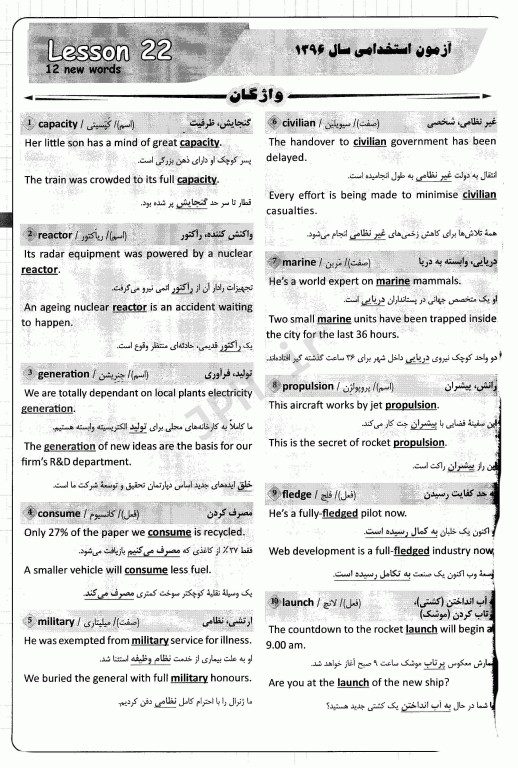 Lesson 22
12 new words
آزمون استخدامی سال ۱۳۹۶
واژگان
1 capacity / کَپَسیتی /(اسم) گنجایش، ظرفیت
Her little son has a mind of great capacity.
پسر کوچک او دارای ذهن بزرگی است.
The train was crowded to its full capacity.
قطار تا سر حد گنجایش پر شده بود.
2 reactor / ریاکتور /(اسم) واکنش کننده، رآکتور
Its radar equipment was powered by a nuclear
reactor.
تجهیزات رادار آن از راکتور اتمی نیرو می‌گرفت.
An ageing nuclear reactor is an accident waiting
to happen.
یک راکتور قدیمی، حادثه‌ای منتظر وقوع است.
3 generation / جنریشن /(اسم) تولید، فرآوری
We are totally dependant on local plants electricity
generation.
ما کاملاً به کارخانه‌های محلی برای تولید الکتریسیته وابسته هستیم.
The generation of new ideas are the basis for our
firm's R&D department.
خلق ایده‌های جدید اساس دپارتمان تحقیق و توسعهٔ شرکت ما است.
4 consume / کانسیوم /(فعل) مصرف کردن
Only 27% of the paper we consume is recycled.
فقط ۲۷٪ از کاغذی که مصرف می‌کنیم بازیافت می‌شود.
A smaller vehicle will consume less fuel.
یک وسیلهٔ نقلیهٔ کوچکتر سوخت کمتری مصرف می‌کند.
5 military / میلیتاری /(صفت) ارتشی، نظامی
He was exempted from military service for illness.
او به علت بیماری از خدمت نظام وظیفه استثنا شد.
We buried the general with full military honours.
ما ژنرال را با احترام کامل نظامی دفن کردیم.
6 civilian / سیویلین /(صفت) غیر نظامی، شخصی
The handover to civilian government has been
delayed.
انتقال به دولت غیر نظامی به طول انجامیده است.
Every effort is being made to minimise civilian
casualties.
همهٔ تلاش‌ها برای کاهش زخمی‌های غیر نظامی انجام می‌شود.
7 marine / مَرین /(صفت) دریایی، وابسته به دریا
He's a world expert on marine mammals.
او یک متخصص جهانی در پستانداران دریایی است.
Two small marine units have been trapped inside
the city for the last 36 hours.
دو واحد کوچک نیروی دریایی داخل شهر برای ۳۶ ساعت گذشته گیر افتاده‌اند.
8 propulsion / پروپولژن /(اسم) رانش، پیشران
This aircraft works by jet propulsion.
این سفینهٔ فضایی با پیشران جت کار می‌کند.
This is the secret of rocket propulsion.
این راز پیشران راکت است.
9 fledge / فلج /(فعل) به حد کفایت رسیدن
He's a fully-fledged pilot now.
او اکنون یک خلبان به کمال رسیده است.
Web development is a full-fledged industry now
توسعهٔ وب اکنون یک صنعت به تکامل رسیده است.
10 launch / لانچ /(فعل) به آب انداختن (کشتی)،
پرتاب کردن (موشک)
The countdown to the rocket launch will begin a
9.00 am.
شمارش معکوس پرتاب موشک ساعت ۹ صبح آغاز خواهد شد.
Are you at the launch of the new ship?
آیا شما در حال به آب انداختن یک کشتی جدید هستید؟